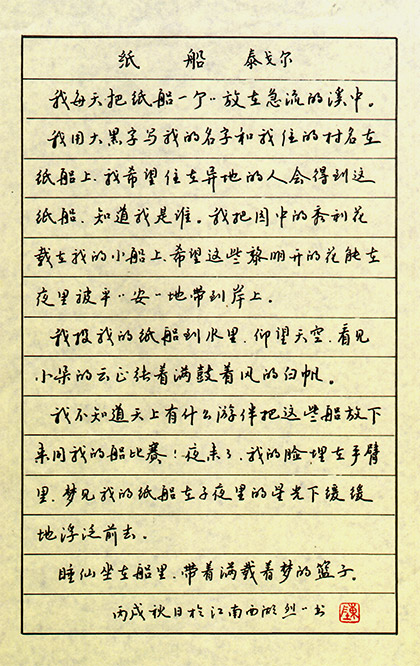 纸 船 泰戈尔
我每天把纸船一个〃放在急流的溪中。
我用大黑字写我的名字和我住的村名在
纸船上.我希望住在异地的人会得到这
纸船.知道我是谁。我把园中的秀利花
载在我的小船上.希望这些黎明开的花能在
夜里被平〃安〃地带到岸上。
我投我的纸船到水里.仰望天空.看见
小朵的云正张着满鼓着风的白帆。
我不知道天上有什么游伴把这些船放下
来同我的船比赛!夜来了.我的脸埋在手臂
里.梦见我的纸船在子夜里的星光下缓缓
地浮泛前去。
睡仙坐在船里.带着满载着梦的篮子。
丙戌秋日於江南西湖烈〃书